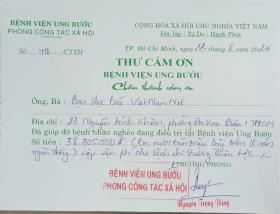 BỆNH VIỆN UNG BƯỚU
PHÒNG CÔNG TÁC XÃ HỘI
CỘNG HÒA XÃ HỘI CHỦ NGHĨA VIỆT NAM
Độc lập - Tự Do - Hạnh Phúc
Số: /CTXH
TP. Hồ Chí Minh, ngày tháng năm
THƯ CẢM ƠN
BỆNH VIỆN UNG BƯỚU
Chân thành cảm ơn
Ông, Bà: Bạn đọc báo VietNamNet
Địa chỉ: 27 Nguyễn Bỉnh Khiêm, phường Đa Kao Quận 1 TPHCM
Đã giúp đỡ bệnh nhân nghèo đang điều trị tại Bệnh viện Ung Bướu
Số tiền: 38.705.000đ (Ba mươi tám triệu bảy trăm lẻ năm
ngàn đồng) nộp viện phí cho bệnh nhi Trương Thiên
TRƯỞNG PHÒNG
BỆNH VIỆN UNG BƯỚU
PHÒNG CÔNG TÁC XÃ HỘI